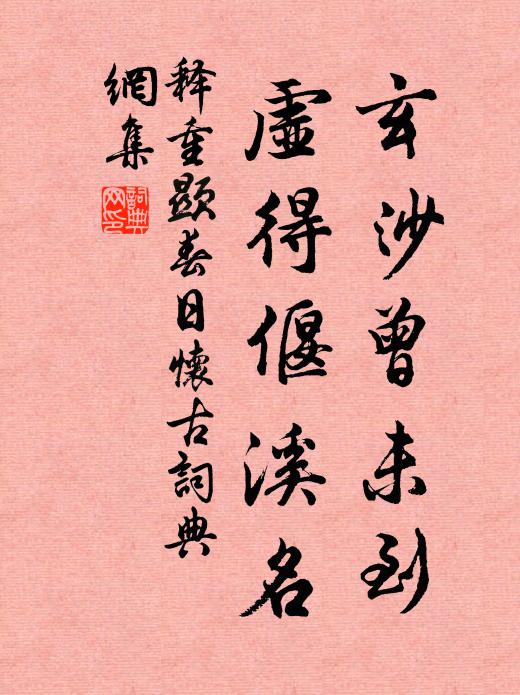 玄沙曾未到
虛得偃溪名
释重顯春日懷古詞典
網集
詞典网印